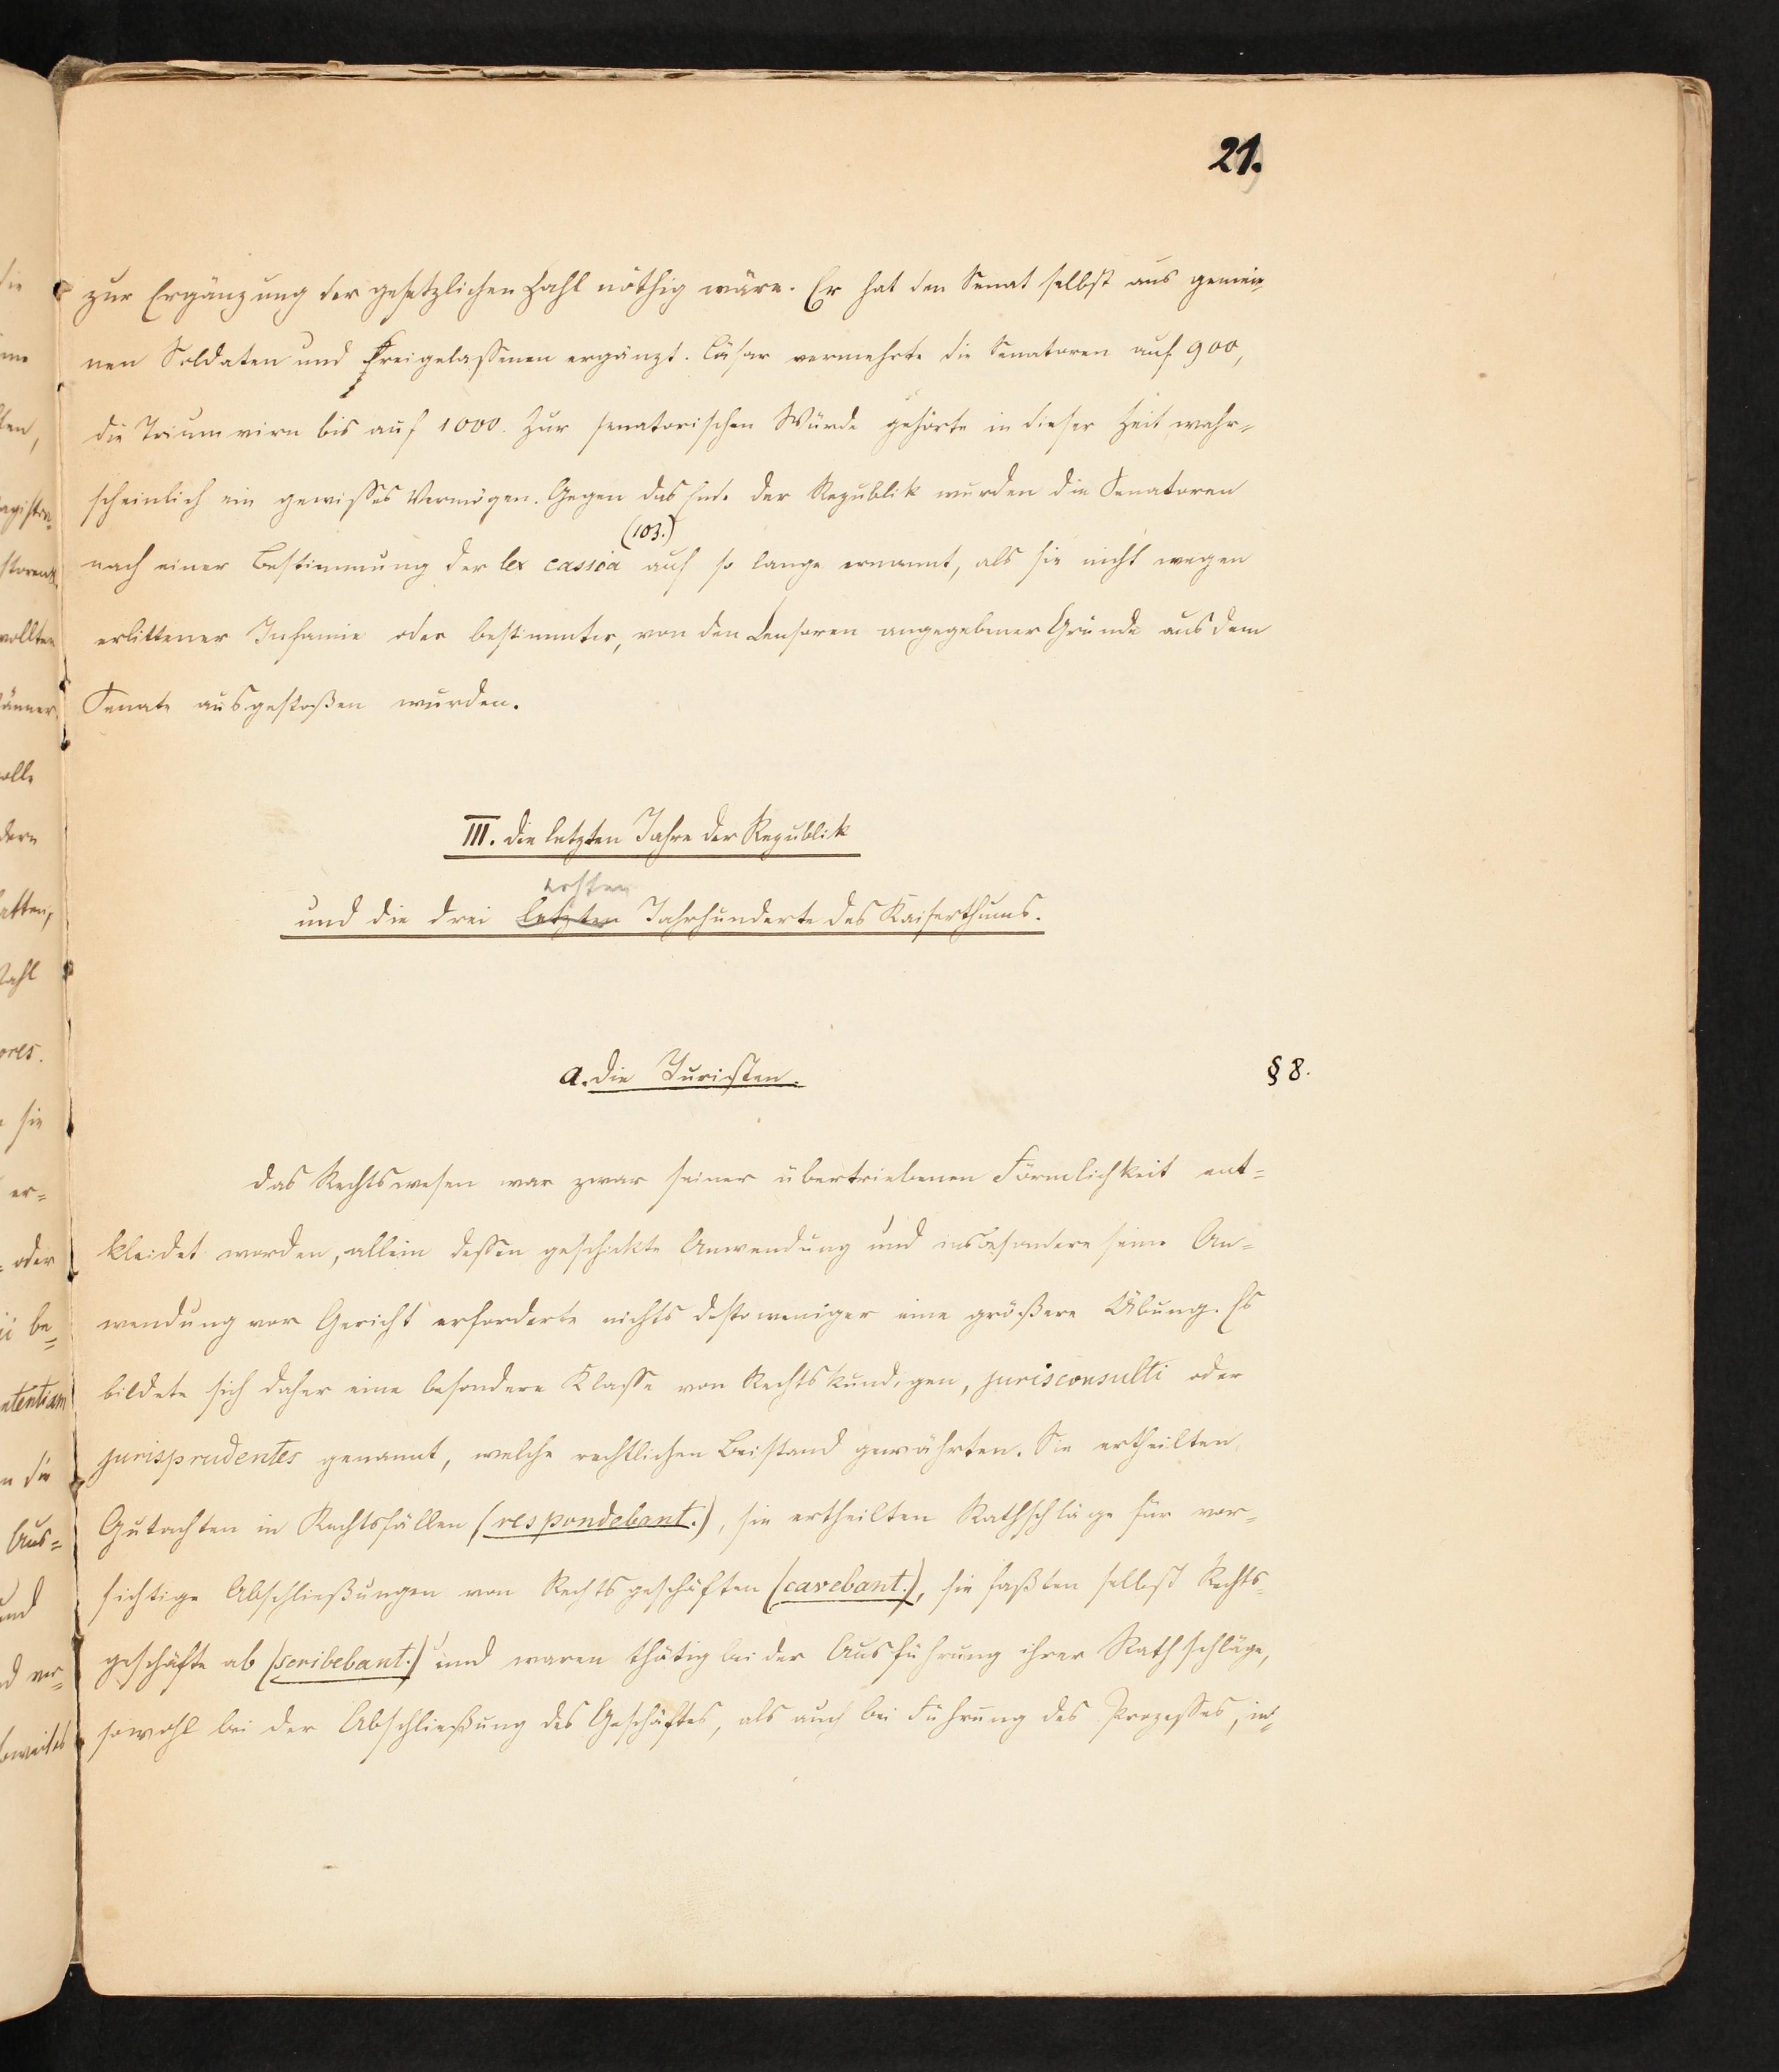 21.
zur Ergänzung der gesetzlichen Zahl nöthig wäre. Er hat den Senat selbst aus gemei-
nen Soldaten und Freigelaßenen ergänzt. Cäsar vermehrte die Senatoren auf 900,
die Triumvirn bis auf 1000. Zur senatorischen Würde gehörte in dieser Zeit wahr-
scheinlich ein gewißes Vermögen. Gegen das Ende der Republik wurden die Senatoren
(103.)
nach einer Bestimmung der lex cassia auf so lange ernannt, als sie nicht wegen
erlittener Infamie oder bestimmter, von den Censoren angegebener Gründe aus dem
Senate ausgestoßen wurden.
III. Die letzten Jahre der Republik
ersten
und die drei letzten Jahrhunderte des Kaiserthums.
a. Die Juristen.
§ 8.
Das Rechtswesen war zwar seiner übertriebenen Förmlichkeit ent=
kleidet worden, allein deßen geschickte Anwendung und insbesondere seine An=
wendung vor Gericht erforderte nichts destoweniger eine größere Übung. Es
bildete sich daher eine besondere Klaße von Rechtskundigen, jurisconsulti oder
jurisprudentes genannt, welche rechtlichen Beistand gewährten. Sie ertheilten
Gutachten in Rechtsfällen (respondebant.), sie ertheilten Rathschläge für vor=
sichtige Abschließungen von Rechtsgeschäften (cavebant.), sie faßten selbst Rechts=
geschäfte ab (scribebant.) und waren thätig bei der Ausführung ihrer Rathschläge,
sowohl bei der Abschließung des Geschäftes, als auch bei Führung des Prozeßes, in=